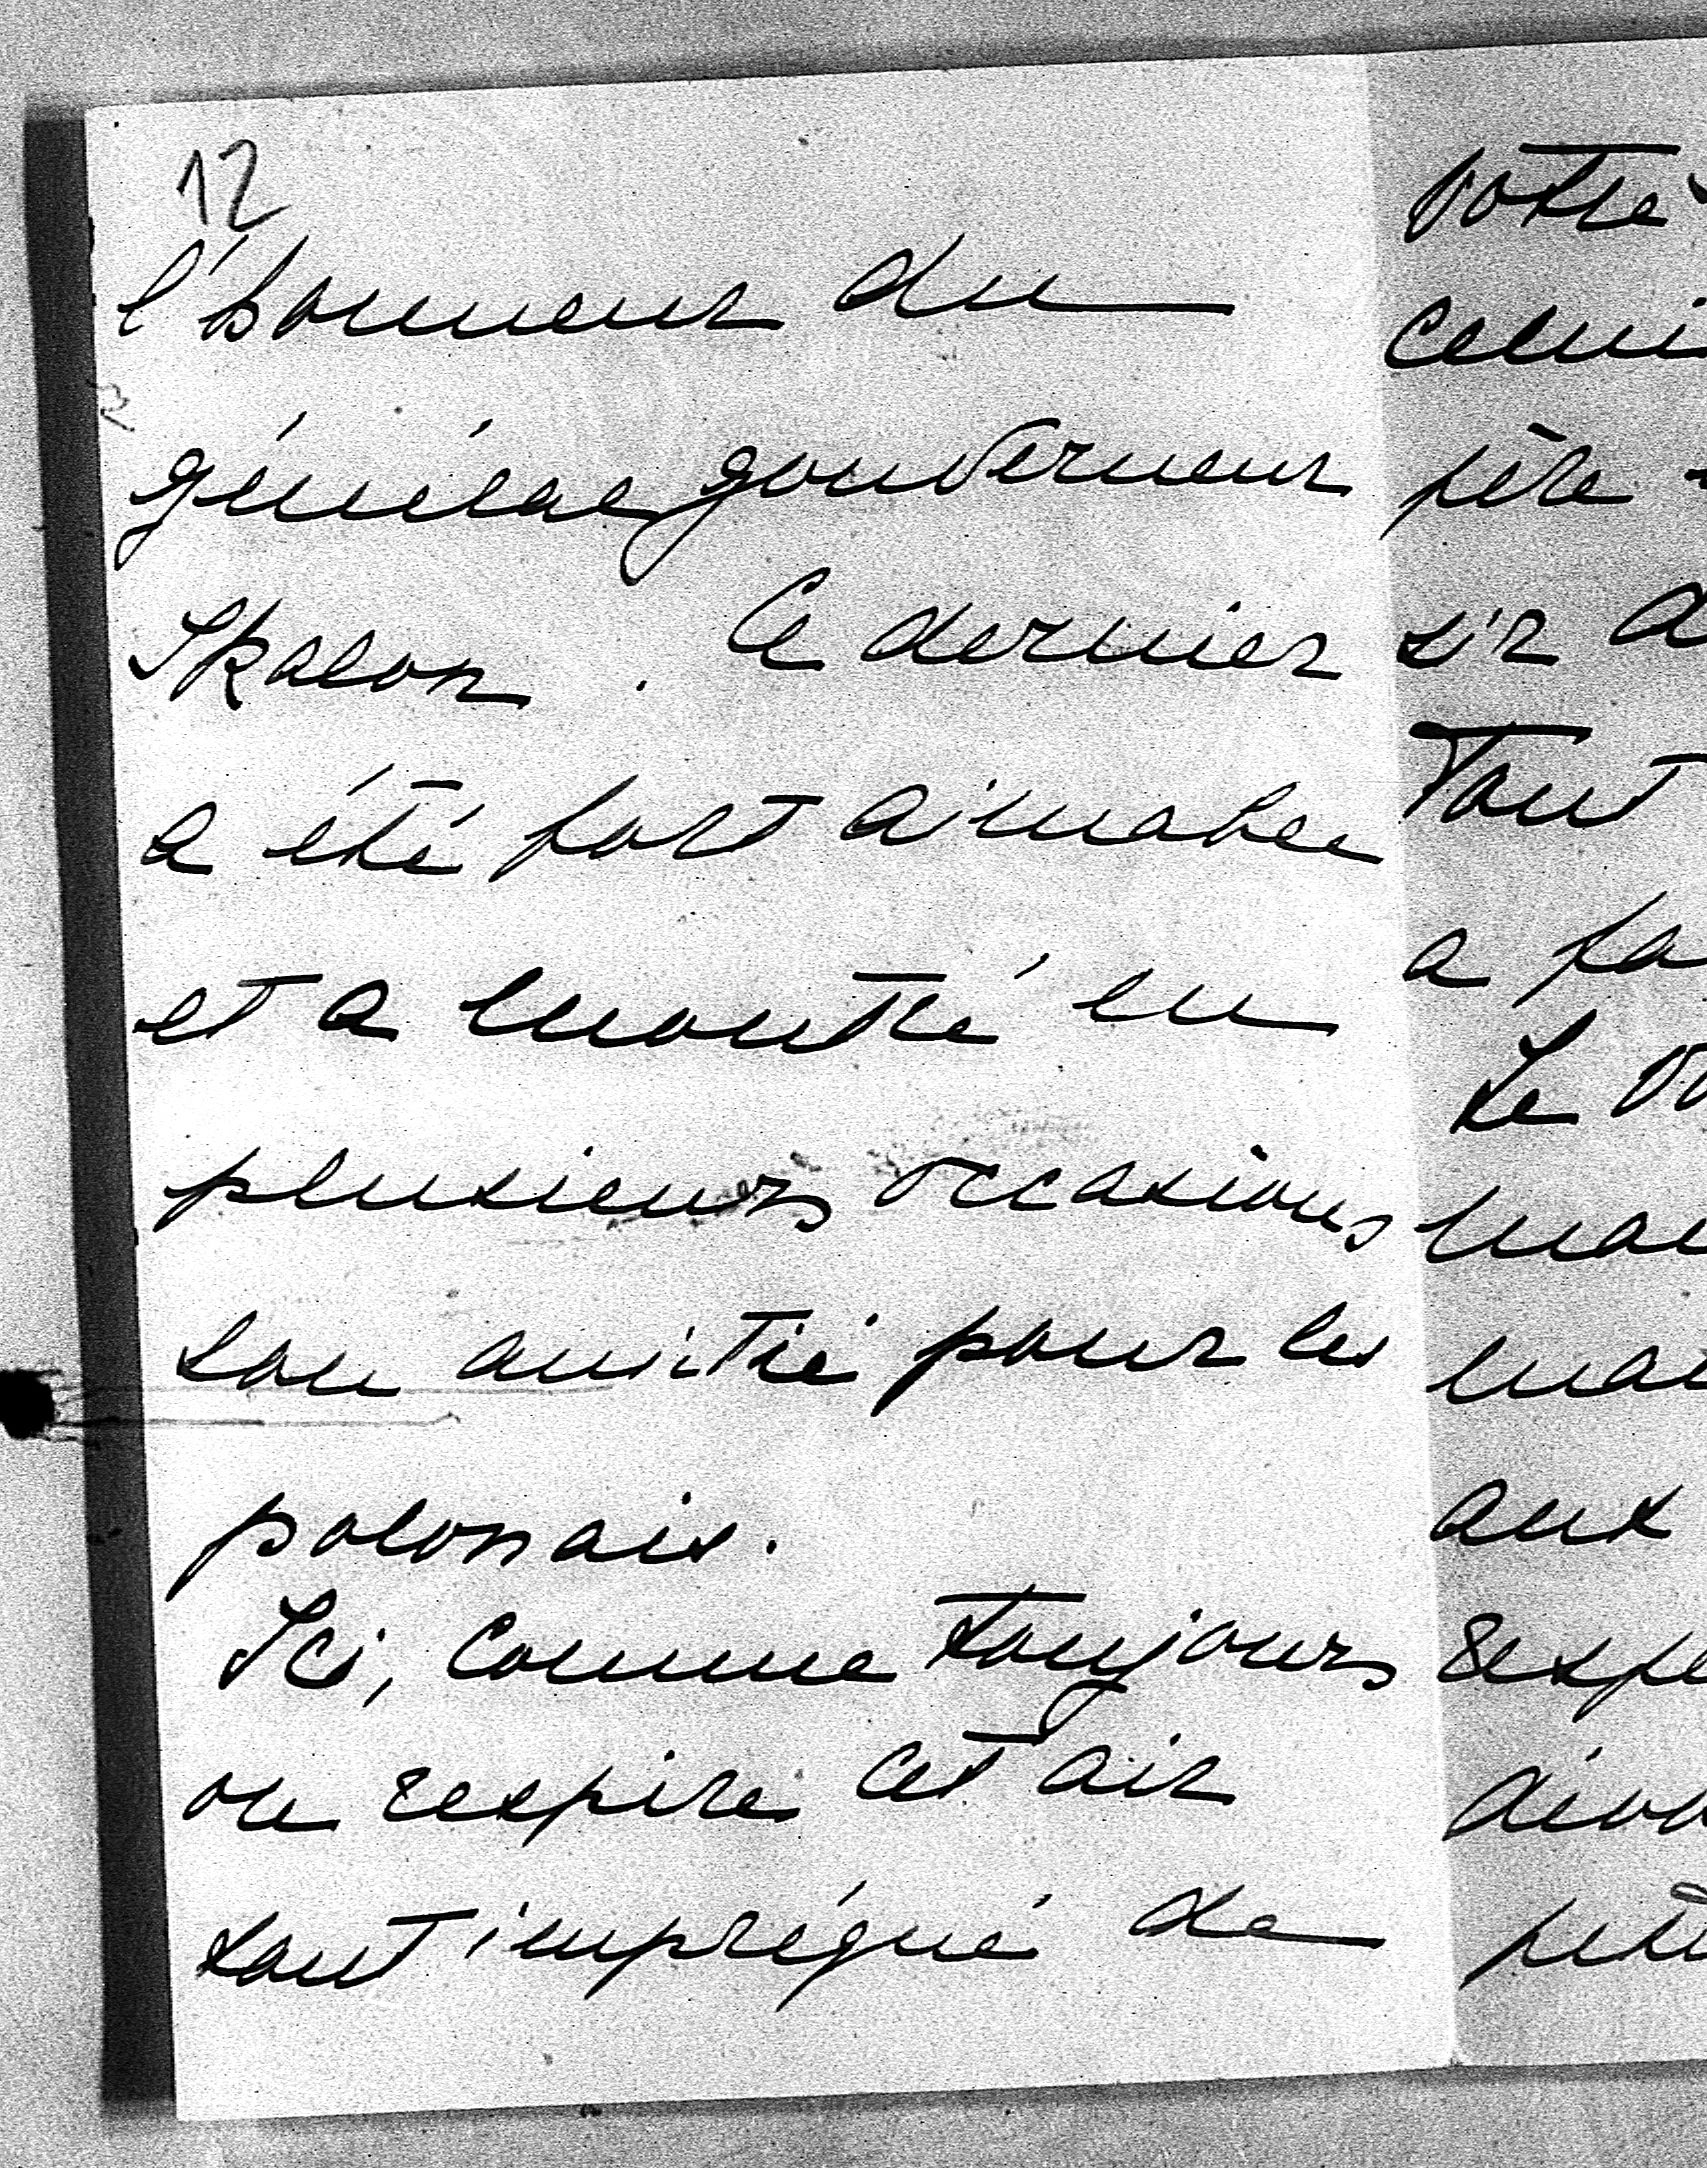 12
l'honneur du
général gouverneur
Skalon. Ce dernier
a été fort aimable
et a montré en
plusieurs occasions
son amitié pour les
polonais.
Ici, comme toujours
on respire cet air
tout imprégné de
votre
celui
père
sir
Tout
a
Le
aux